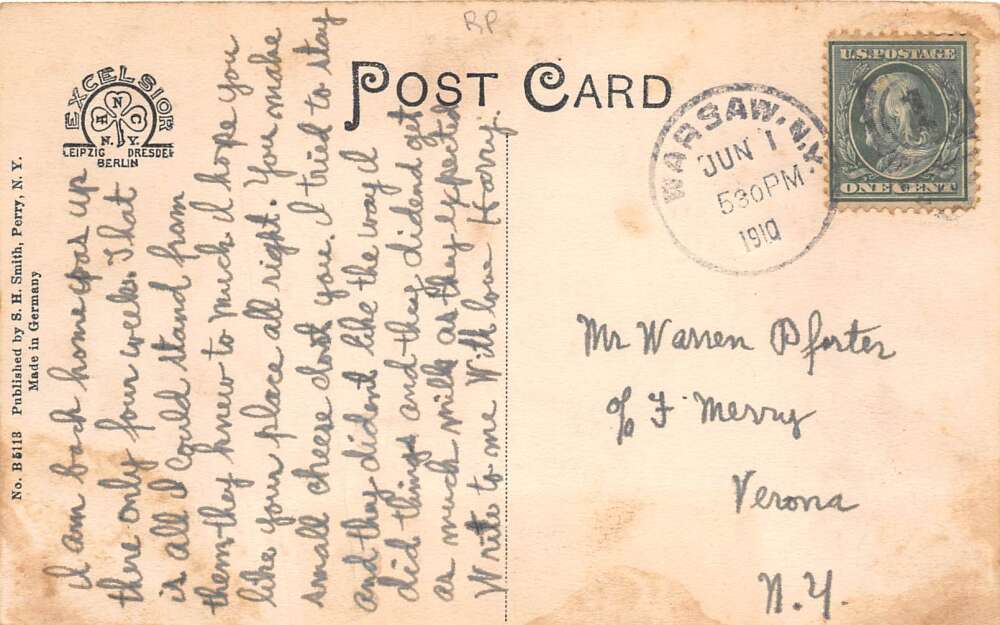 RP
POST CARD
EXCELSIOR
N
H C
N.Y.
LEIPZIG DRESDEN
BERLIN
No. B5113 Published by S. H. Smith, Perry, N. Y.
Made in Germany
I am back home was up
there only four weeks. That
is all I could stand from
them they knew to much. I hope you
like your place all right. You make
small cheese dont you. I tried to stay
and they dident like the way I
did things and they didend get
as much milk as they expected
Write to me With love Harry.
WARSAW, N.Y.
JUN 1
530PM
1910
U.S. POSTAGE
ONE CENT
Mr Warren Pforter
c/o F Merry
Verona
N.Y.